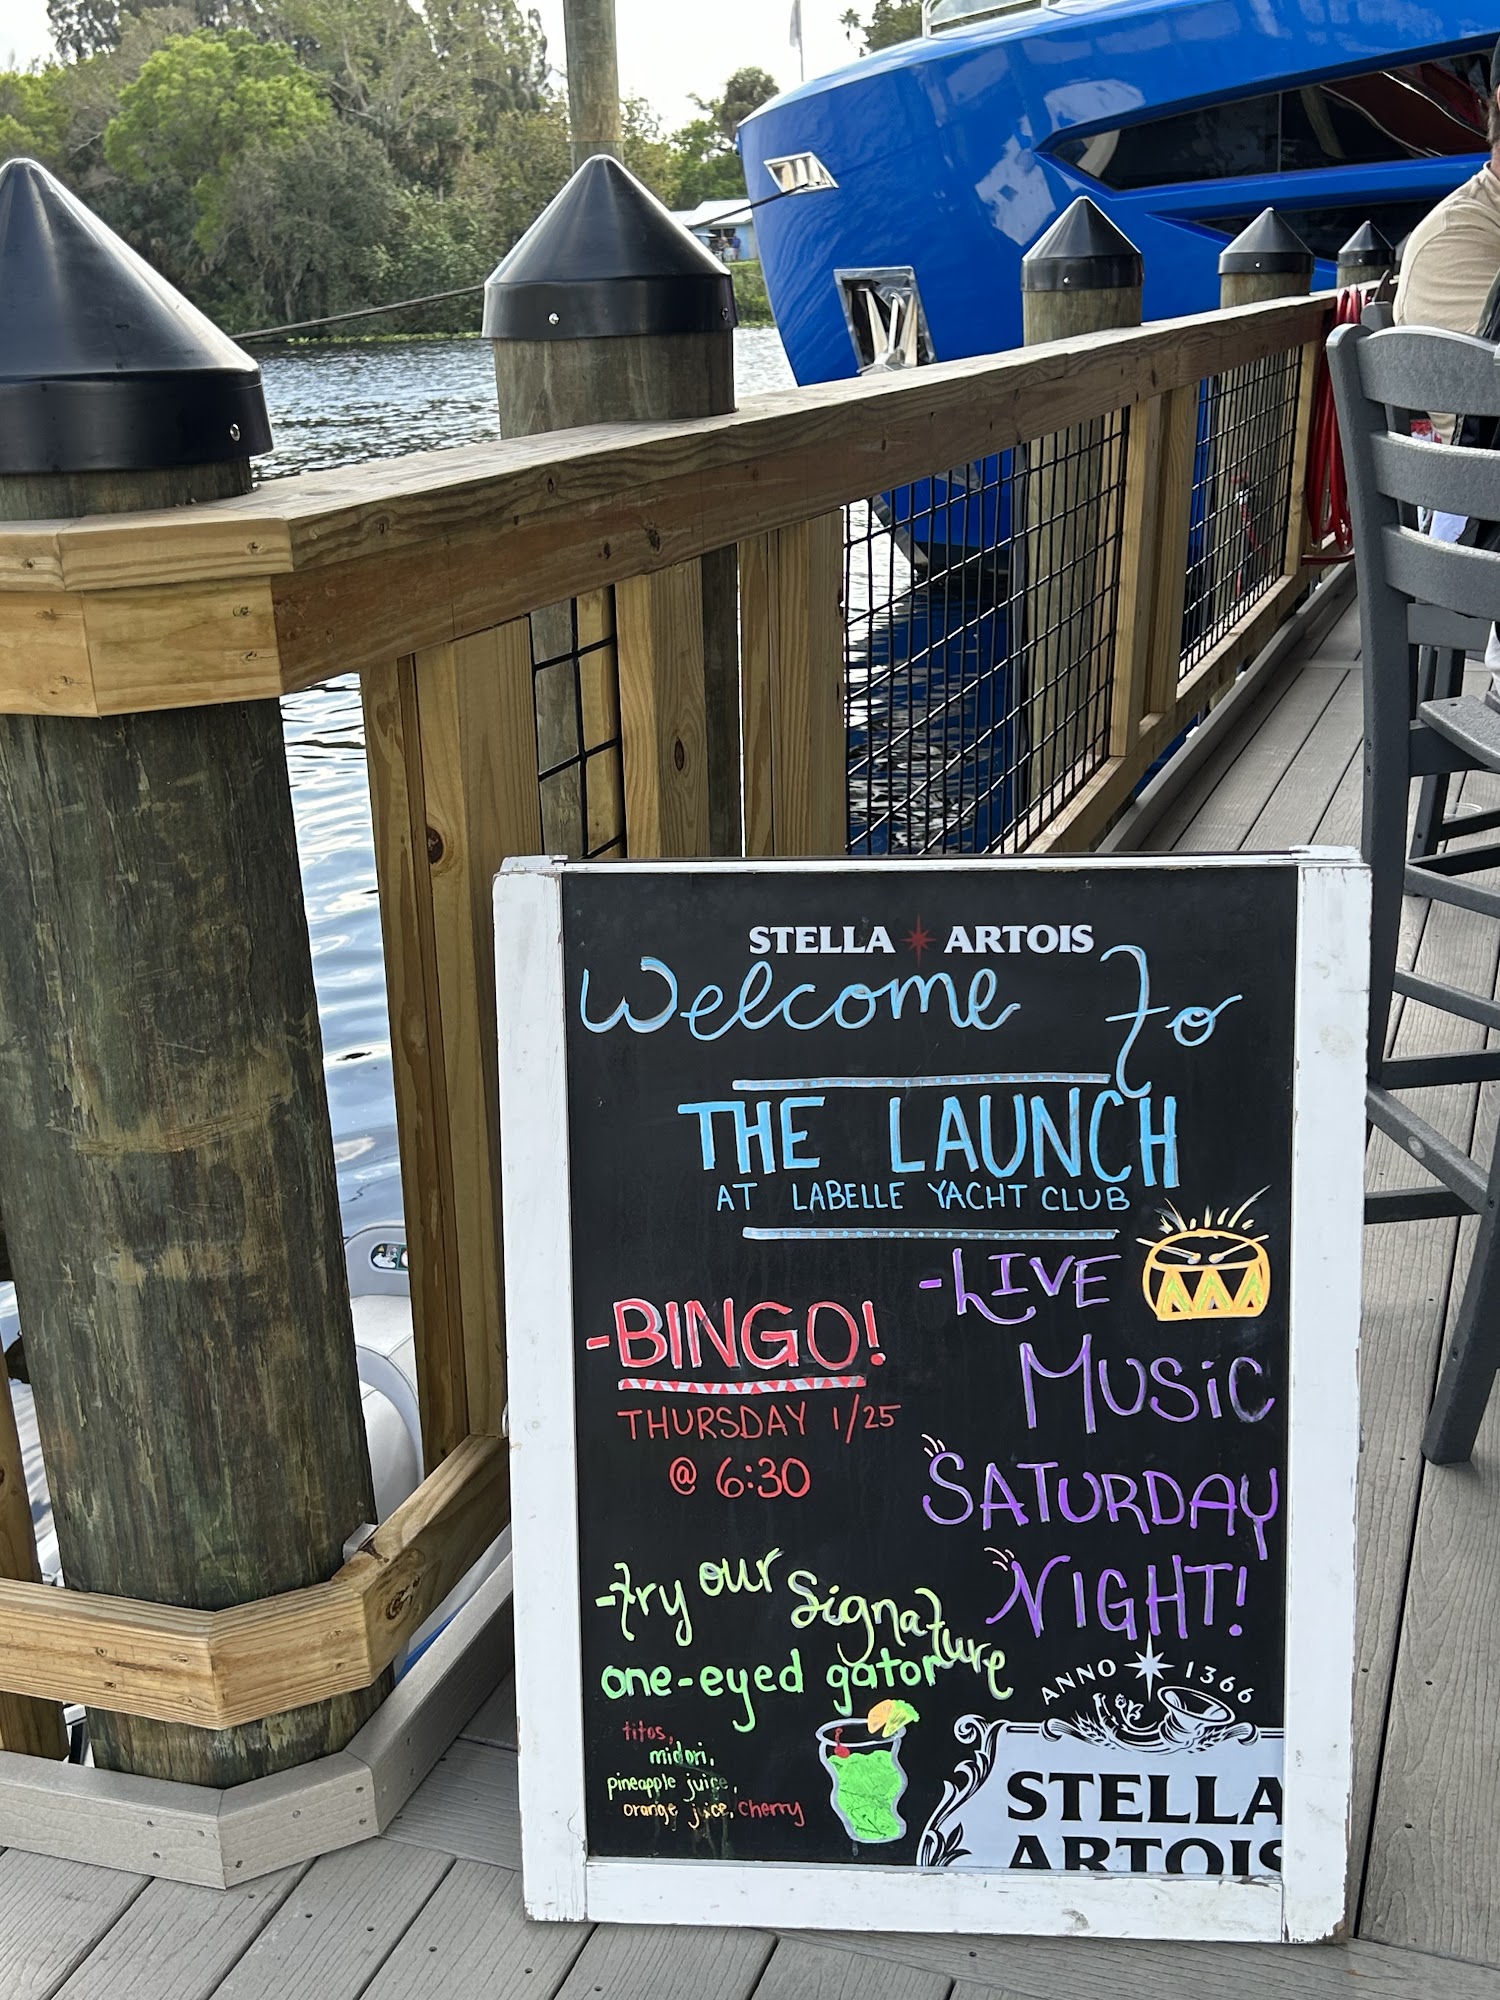 STELLA ARTOIS
Welcome To
THE LAUNCH
AT LABELLE YACHT CLUB
-BINGO!
THURSDAY 1/25
@ 6:30
-LIVE
MUSiC
SATURDAY
NIGHT!
-try our signature
one-eyed gator
titos,
midori,
pineapple juice,
orange juice, cherry
ANNO 1366
STELLA
ARTOIS